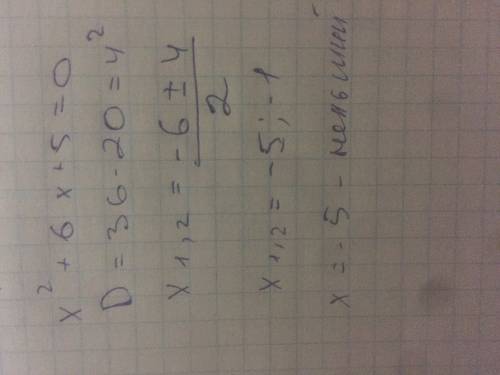 x² + 6x + 5 = 0
D = 36 - 20 = 4²
x 1,2 = -6 ± 4 / 2
x 1,2 = -5; -1
x = -5 - меньший